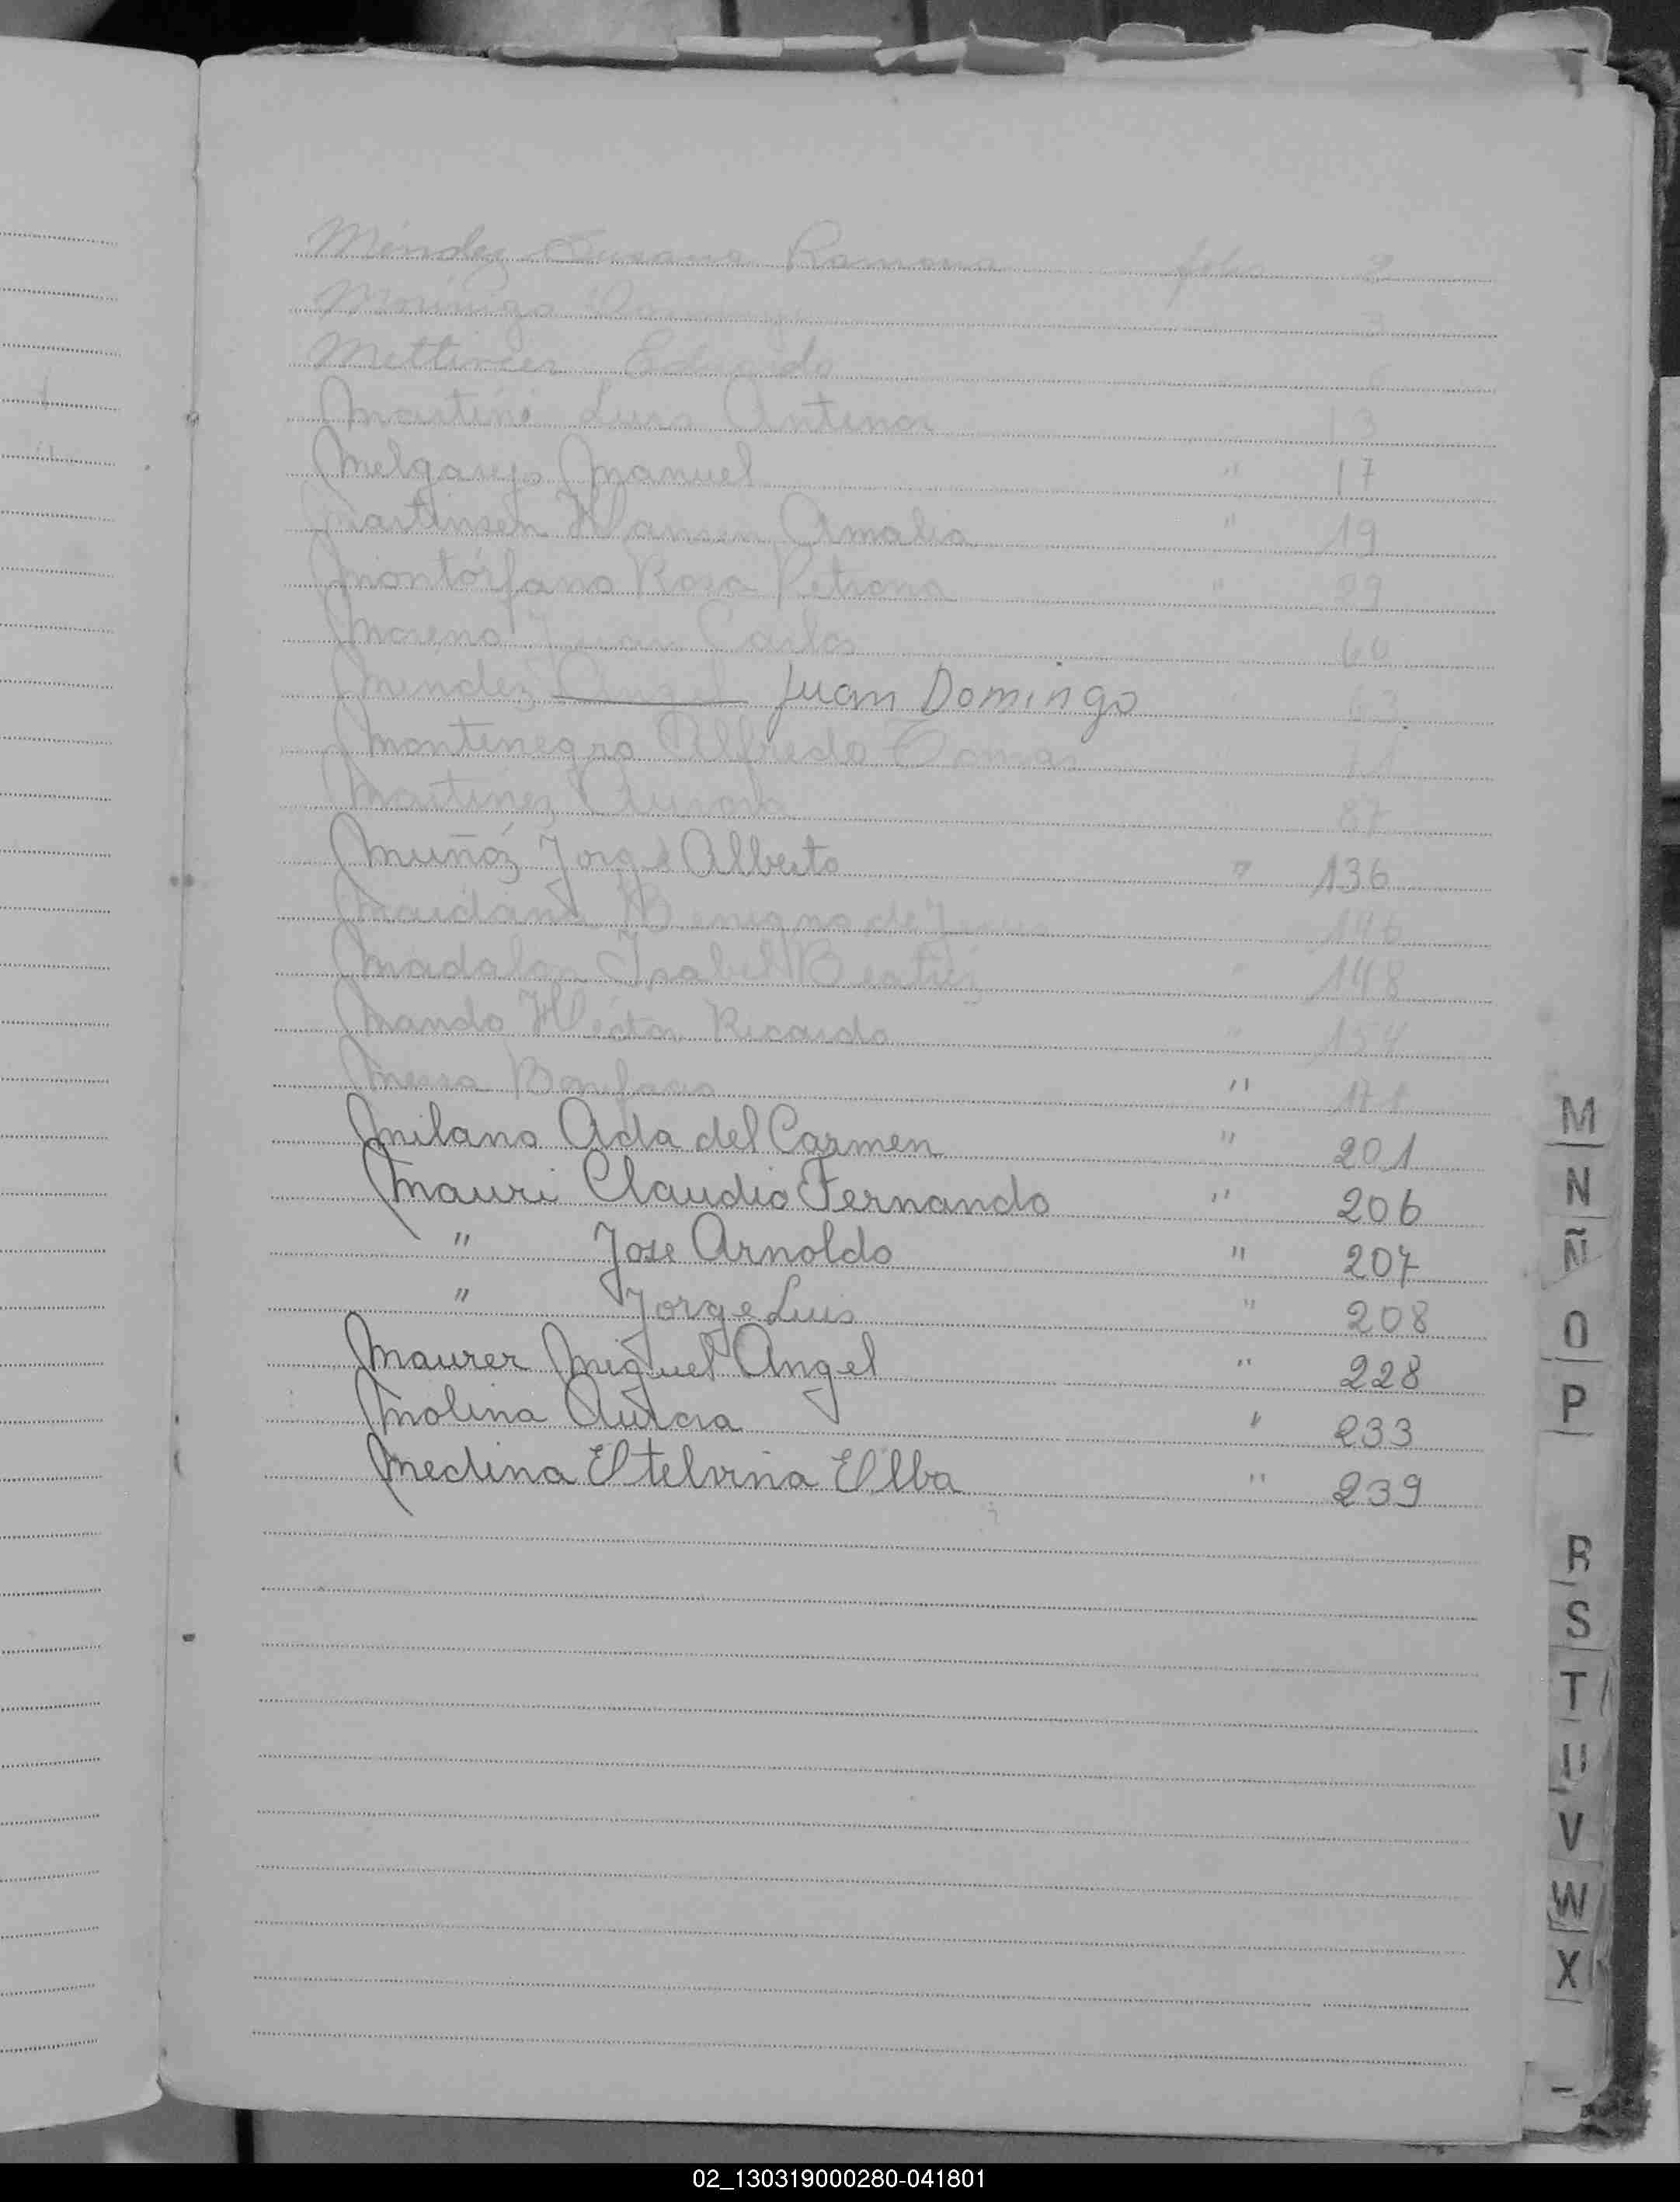 Méndez Susana Ramona folio 2
Mettinier Eduardo
Martini Luis Antenor " 13
Melgarejo Manuel " 17
Martinsen Hansen Amalia " 19
Montórfano Rosa Petrona " 29
Moreno Juan Carlos 60
Mendez Angel Juan Domingo 63
Montenegro Alfredo Tomas 71
Martinez Aurora 87
Muñóz Jorge Alberto " 136
Maidana Benigno de Jesus 146
Madalon Isabel Beatriz " 148
Mando Héctor Ricardo " 154
Meza Bonifacio "
Milano Ada del Carmen " 201
Mauri Claudio Fernando " 206
" Jose Arnoldo " 207
" Jorge Luis " 208
Maurer Miguel Angel " 228
Molina " 233
Medina Etelvina Elba " 239
M
N
Ñ
O
P
R
S
T
U
V
W
X
02_130319000280-041801